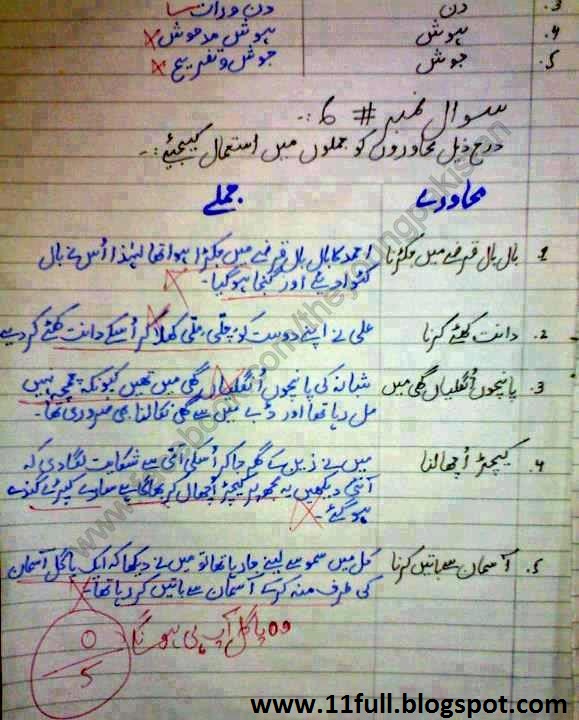 3. دن دن و رات
4. ہوش ہوش مدہوش
5. جوش جوش و تفریح
سوال نمبر # 6 :-
درج ذیل محاوروں کو جملوں میں استعمال کیجئے :-
محاورے جملے
1. بال بال قرضے میں جکڑنا احمد کا بال بال قرضے میں جکڑا ہوا تھا لہٰذا اُس نے بال
کٹوا دیئے اور گنجا ہو گیا۔
2. دانت کھٹے کرنا علی نے اپنے دوست کو چٹنی کھلا کر اُسکے دانت کھٹے کر دیے
3. پانچوں اُنگلیاں گھی میں شبانہ کی پانچوں اُنگلیاں گھی میں تھیں کیونکہ چمچ نہیں
مل رہا تھا اور ڈبے میں سے گھی نکالنا بھی ضروری تھا۔
4. کیچڑ اُچھالنا میں نے زین کے گھر جا کر اُسکی امّی سے شکایت لگا دی کہ
آنٹی دیکھیں یہ مجھ پر کیچڑ اُچھال کر بھاگا ہے سارے کپڑے گندے
ہو گئے۔
5. آسمان سے باتیں کرنا کل میں سموسے لینے جا رہا تھا تو میں نے دیکھا کہ ایک پاگل آسمان
کی طرف منہ کر کے آسمان سے باتیں کر رہا تھا۔
وہ پاگل آپ ہی ہونگے
0
5
www.11full.blogspot.com